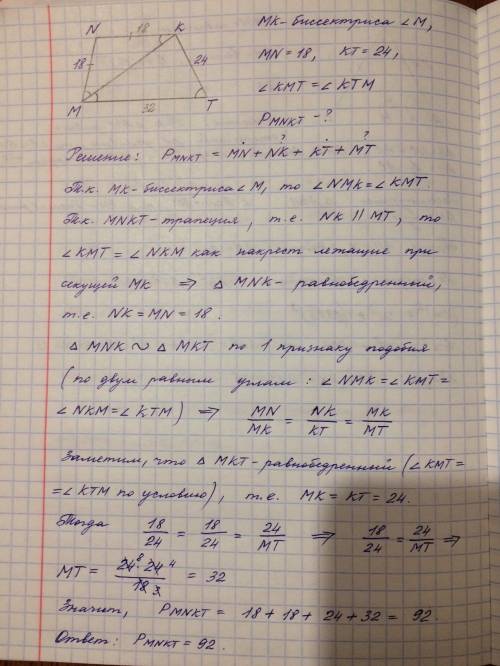 N 18 K
18 24
M 32 T
MK - биссектриса ∠M,
MN = 18, KT = 24,
∠KMT = ∠KTM
P MNKT - ?
Решение: P MNKT = MN + NK + KT + MT
? ?
Т.к. MK - биссектриса ∠M, то ∠NMK = ∠KMT.
Т.к. MNKT - трапеция, т.е. NK || MT, то
∠KMT = ∠NKM как накрест лежащие при
секущей MK ⇒ △ MNK - равнобедренный,
т.е. NK = MN = 18.
△ MNK ~ △ MKT по 1 признаку подобия
(по двум равным углам: ∠NMK = ∠KMT =
∠NKM = ∠KTM) ⇒ MN/MK = NK/KT = MK/MT
Заметим, что △ MKT - равнобедренный (∠KMT =
= ∠KTM по условию), т.е. MK = KT = 24.
Тогда 18/24 = 18/24 = 24/MT ⇒ 18/24 = 24/MT ⇒
MT = 24 8 · 24 4 / 18 3 = 32
Значит, P MNKT = 18 + 18 + 24 + 32 = 92.
Ответ: P MNKT = 92.